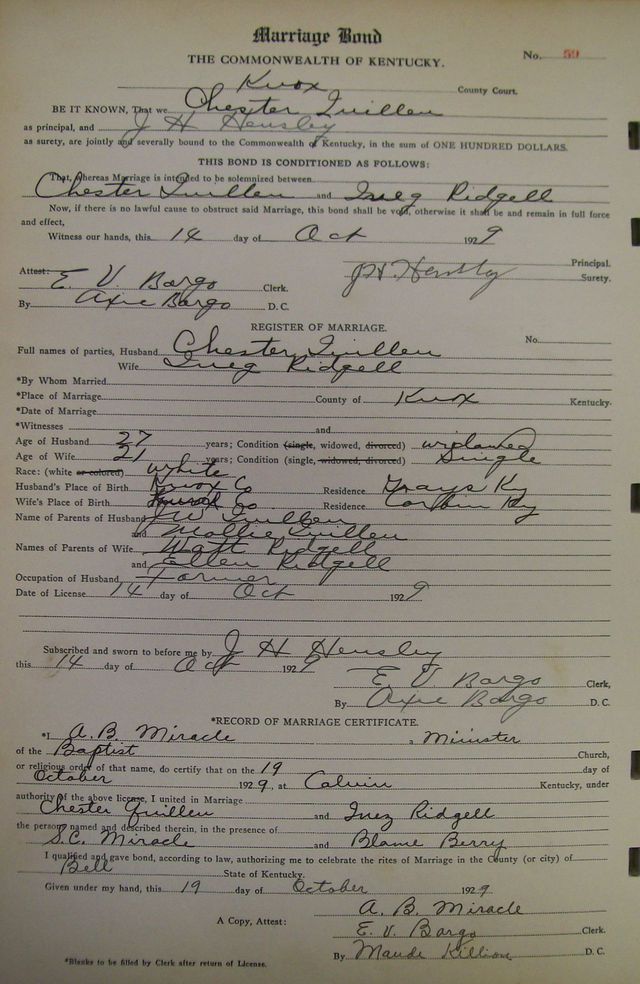 Marriage Bond
THE COMMONWEALTH OF KENTUCKY.
No. 59
Knox County Court.
BE IT KNOWN, That we Chester Quillen
as principal, and J H Hensley
as surety, are jointly and severally bound to the Commonwealth of Kentucky, in the sum of ONE HUNDRED DOLLARS.
THIS BOND IS CONDITIONED AS FOLLOWS:
That, whereas Marriage is intended to be solemnized between
Chester Quillen and Ineg Ridgell
Now, if there is no lawful cause to obstruct said Marriage, this bond shall be void, otherwise it shall be and remain in full force
and effect,
Witness our hands, this 14 day of Oct 1929
Principal.
Attest: E. V. Bargo Clerk. J.H. Hensley Surety.
By Axie Bargo D. C.
REGISTER OF MARRIAGE.
No.
Full names of parties, Husband Chester Quillen
Wife Ineg Ridgell
*By Whom Married
*Place of Marriage County of Knox Kentucky.
*Date of Marriage
*Witnesses and
Age of Husband 27 years; Condition (single, widowed, divorced) widowed
Age of Wife 21 years; Condition (single, widowed, divorced) Single
Race: (white or colored) white
Husband's Place of Birth Knox Co Residence Grays Ky
Wife's Place of Birth Co Residence Corbin Ky
Name of Parents of Husband J W Quillen
and Mollie Quillen
Names of Parents of Wife Watt Ridgell
and Ellen Ridgell
Occupation of Husband Farmer
Date of License 14 day of Oct 1929
Subscribed and sworn to before me by J H Hensley
this 14 day of Oct 1929
E. V Bargo Clerk,
By Axie Bargo D. C.
*RECORD OF MARRIAGE CERTIFICATE.
*I A. B. Miracle a Minister
of the Baptist Church,
or religious order of that name, do certify that on the 19 day of
October 1929, at Calvin Kentucky, under
authority of the above license, I united in Marriage
Chester Quillen and Inez Ridgell
the persons named and described therein, in the presence of
S.C. Miracle and Blame Berry
I qualified and gave bond, according to law, authorizing me to celebrate the rites of Marriage in the County (or city) of
Bell State of Kentucky.
Given under my hand, this 19 day of October 1929
A. B. Miracle
A Copy, Attest: E. V. Bargo Clerk.
By Maude Killion D. C.
*Blanks to be filled by Clerk after return of License.